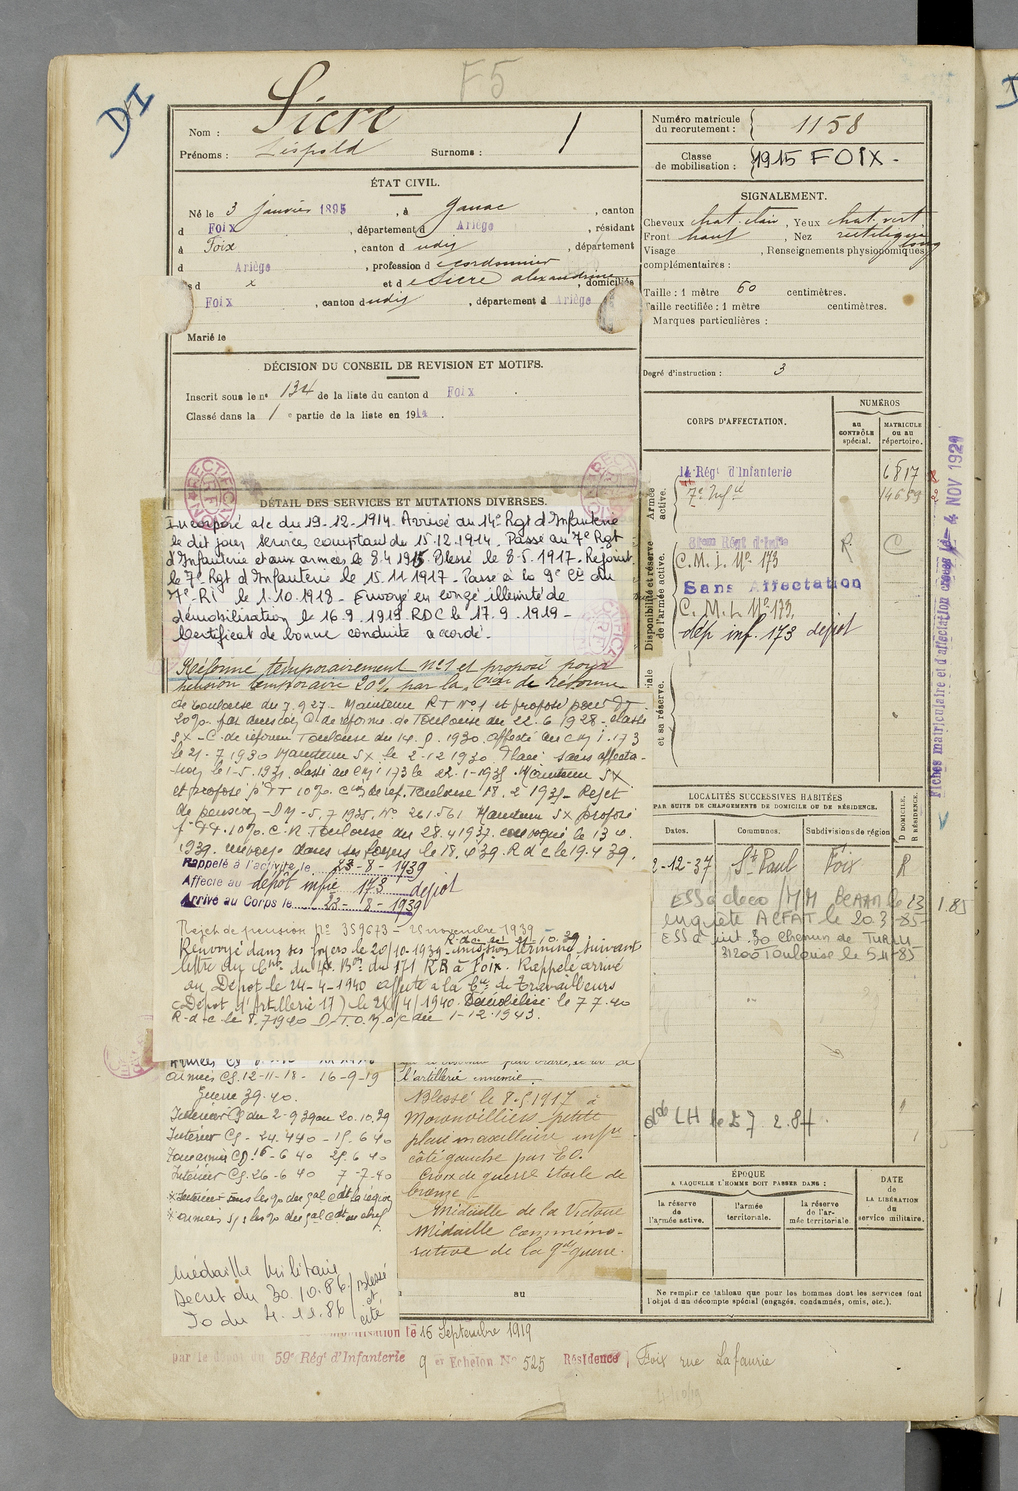 F5
DI
Nom : Sicre
Prénoms : Léopold Surnoms : /
Numéro matricule du recrutement : 1158
Classe de mobilisation : 1915 FOIX -
ÉTAT CIVIL.
Né le 3 janvier 1895, à Ganac, canton
d Foix, département d Ariège, résidant
à Foix, canton d udit, département
d Ariège, profession d cordonnier
s d x et d Sicre alexandrine, domiciliés
Foix, canton dudit, département d Ariège
Marié le
SIGNALEMENT.
Cheveux chat. clair, Yeux chat. vert
Front haut, Nez rectiligne
Visage long, Renseignements physionomiques
complémentaires :
Taille : 1 mètre 60 centimètres.
Taille rectifiée : 1 mètre centimètres.
Marques particulières :
Degré d'instruction : 3
DÉCISION DU CONSEIL DE REVISION ET MOTIFS.
Inscrit sous le n° 134 de la liste du canton d Foix
Classé dans la 1e partie de la liste en 1914.
CORPS D'AFFECTATION.
NUMÉROS
AU CONTRÔLE spécial.
MATRICULE ou au répertoire.
Armée active.
14 Régt d'Infanterie 6817
7e Infie
Disponibilité et réserve de l'armée active.
Régt d'Infie R C
C. M. I. No 173
Sans Affectation
C. M. I. No 173
dép inf. 173 dépot
et sa réserve.
Fiches matriculaire et d'affectation le 4 NOV 1921
DÉTAIL DES SERVICES ET MUTATIONS DIVERSES.
Incorporé a/c du 19-12-1914. Arrivé au 14e Rgt d'Infanterie
le dit jour. Services comptant du 15.12.1914. Passé au 7e Rgt
d'Infanterie et aux armées le 8.4.1915. Blessé le 8-5.1917. Rejoint
le 7e Rgt d'Infanterie le 15.11.1917. Passé à la 9e Cie du
7e RI le 1.10.1918. Envoyé en congé illimité de
démobilisation le 16.9.1919. RDC le 17.9.1919.
Certificat de bonne conduite accordé.
Réformé temporairement No1 et proposé pour
pension temporaire 20% par la Cion de réforme
de Toulouse du 7.9.27 - Maintenu RT No 1 et proposé pour PT
20% par décision C. de réforme de Toulouse du 22.6.1928. classé
SX - C. de réforme Toulouse du 14.8.1930. affecté au CMI. 173
le 21-7 1930 Maintenu SX le 2-12 1930 Placé sans affecta-
tion le 1-5.1931, classé au CMI 173 le 22.1-1935. Maintenu SX
et proposé pr PT 10% Cion de réf. Toulouse 18.2 1935 - Rejet
de pension - DM - 5.7 1935. No 261561 Maintenu SX proposé
pr PT. 10%. C.R Toulouse du 28.4 1937. convoqué le 13 4.
1939. renvoyé dans ses foyers le 18.4 39. R d c le 19.4 39.
Rappelé à l'activité le 23-8-1939
Affecté au dépôt infie 173 dépot
Arrivé au Corps le 23-8-1939
Rejet de pension No 359673 - 25 novembre 1939 -
R.d.c. le 21-10.39
Renvoyé dans ses foyers le 20/10-1939 - mission terminée suivant
lettre du Cdt du Bon du 171 RR à Foix. Rappelé arrivé
au Dépot le 24-4-1940 affecté à la Cie de Travailleurs
(Dépot d'Artillerie 17) le 24/4/1940. Démobilisé le 7 7.40
R-d-c le 8.7 1940 1-12.1943.
armées CS. 12-11-18 - 16-9-19
Guerre 39.40.
Intérieur CS du 2-9 39 au 20.10.39
Intérieur CS - 24.4 40 - 15.6 40
Zone armées CD. 16-6 40 25.6 40
Intérieur CS. 26-6 40 7-7-40
Médaille Militaire
Décret du 30.10.86 / Blessé et cité
Jo du 4.11.86
l'artillerie ennemie.
Blessé le 8-5 1917 à
Moronvilliers petite
plaie maxillaire infr
côté gauche par EO.
Croix de guerre étoile de
bronze
Médaille de la Victoire
Médaille commémo-
rative de la gde guerre.
au
LOCALITÉS SUCCESSIVES HABITÉES
PAR SUITE DE CHANGEMENTS DE DOMICILE OU DE RÉSIDENCE.
Dates. Communes. Subdivisions de région D DOMICILE. R RÉSIDENCE.
2-12-37 St Paul Foix R
ESS à deco / MM BCAAM le 23 1.85
enquête ACFAT le 20.3-85-
ESS à int. 30 chemin de Tunis
31200 Toulouse le 5.11-85
dde LH le 27.2.84.
ÉPOQUE
A LAQUELLE L'HOMME DOIT PASSER DANS :
la réserve de l'armée active.
l'armée territoriale.
la réserve de l'armée territoriale.
DATE de LA LIBÉRATION du service militaire.
Ne remplir ce tableau que pour les hommes dont les services font
l'objet d'un décompte spécial (engagés, condamnés, omis, etc.).
le 16 Septembre 1919
par le dépôt du 59e Régt d'Infanterie 9 er Echelon No 525 Résidence Foix rue Lafaurie